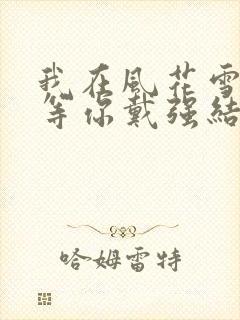 我在風花雪
等你戴强結
哈姆雷特